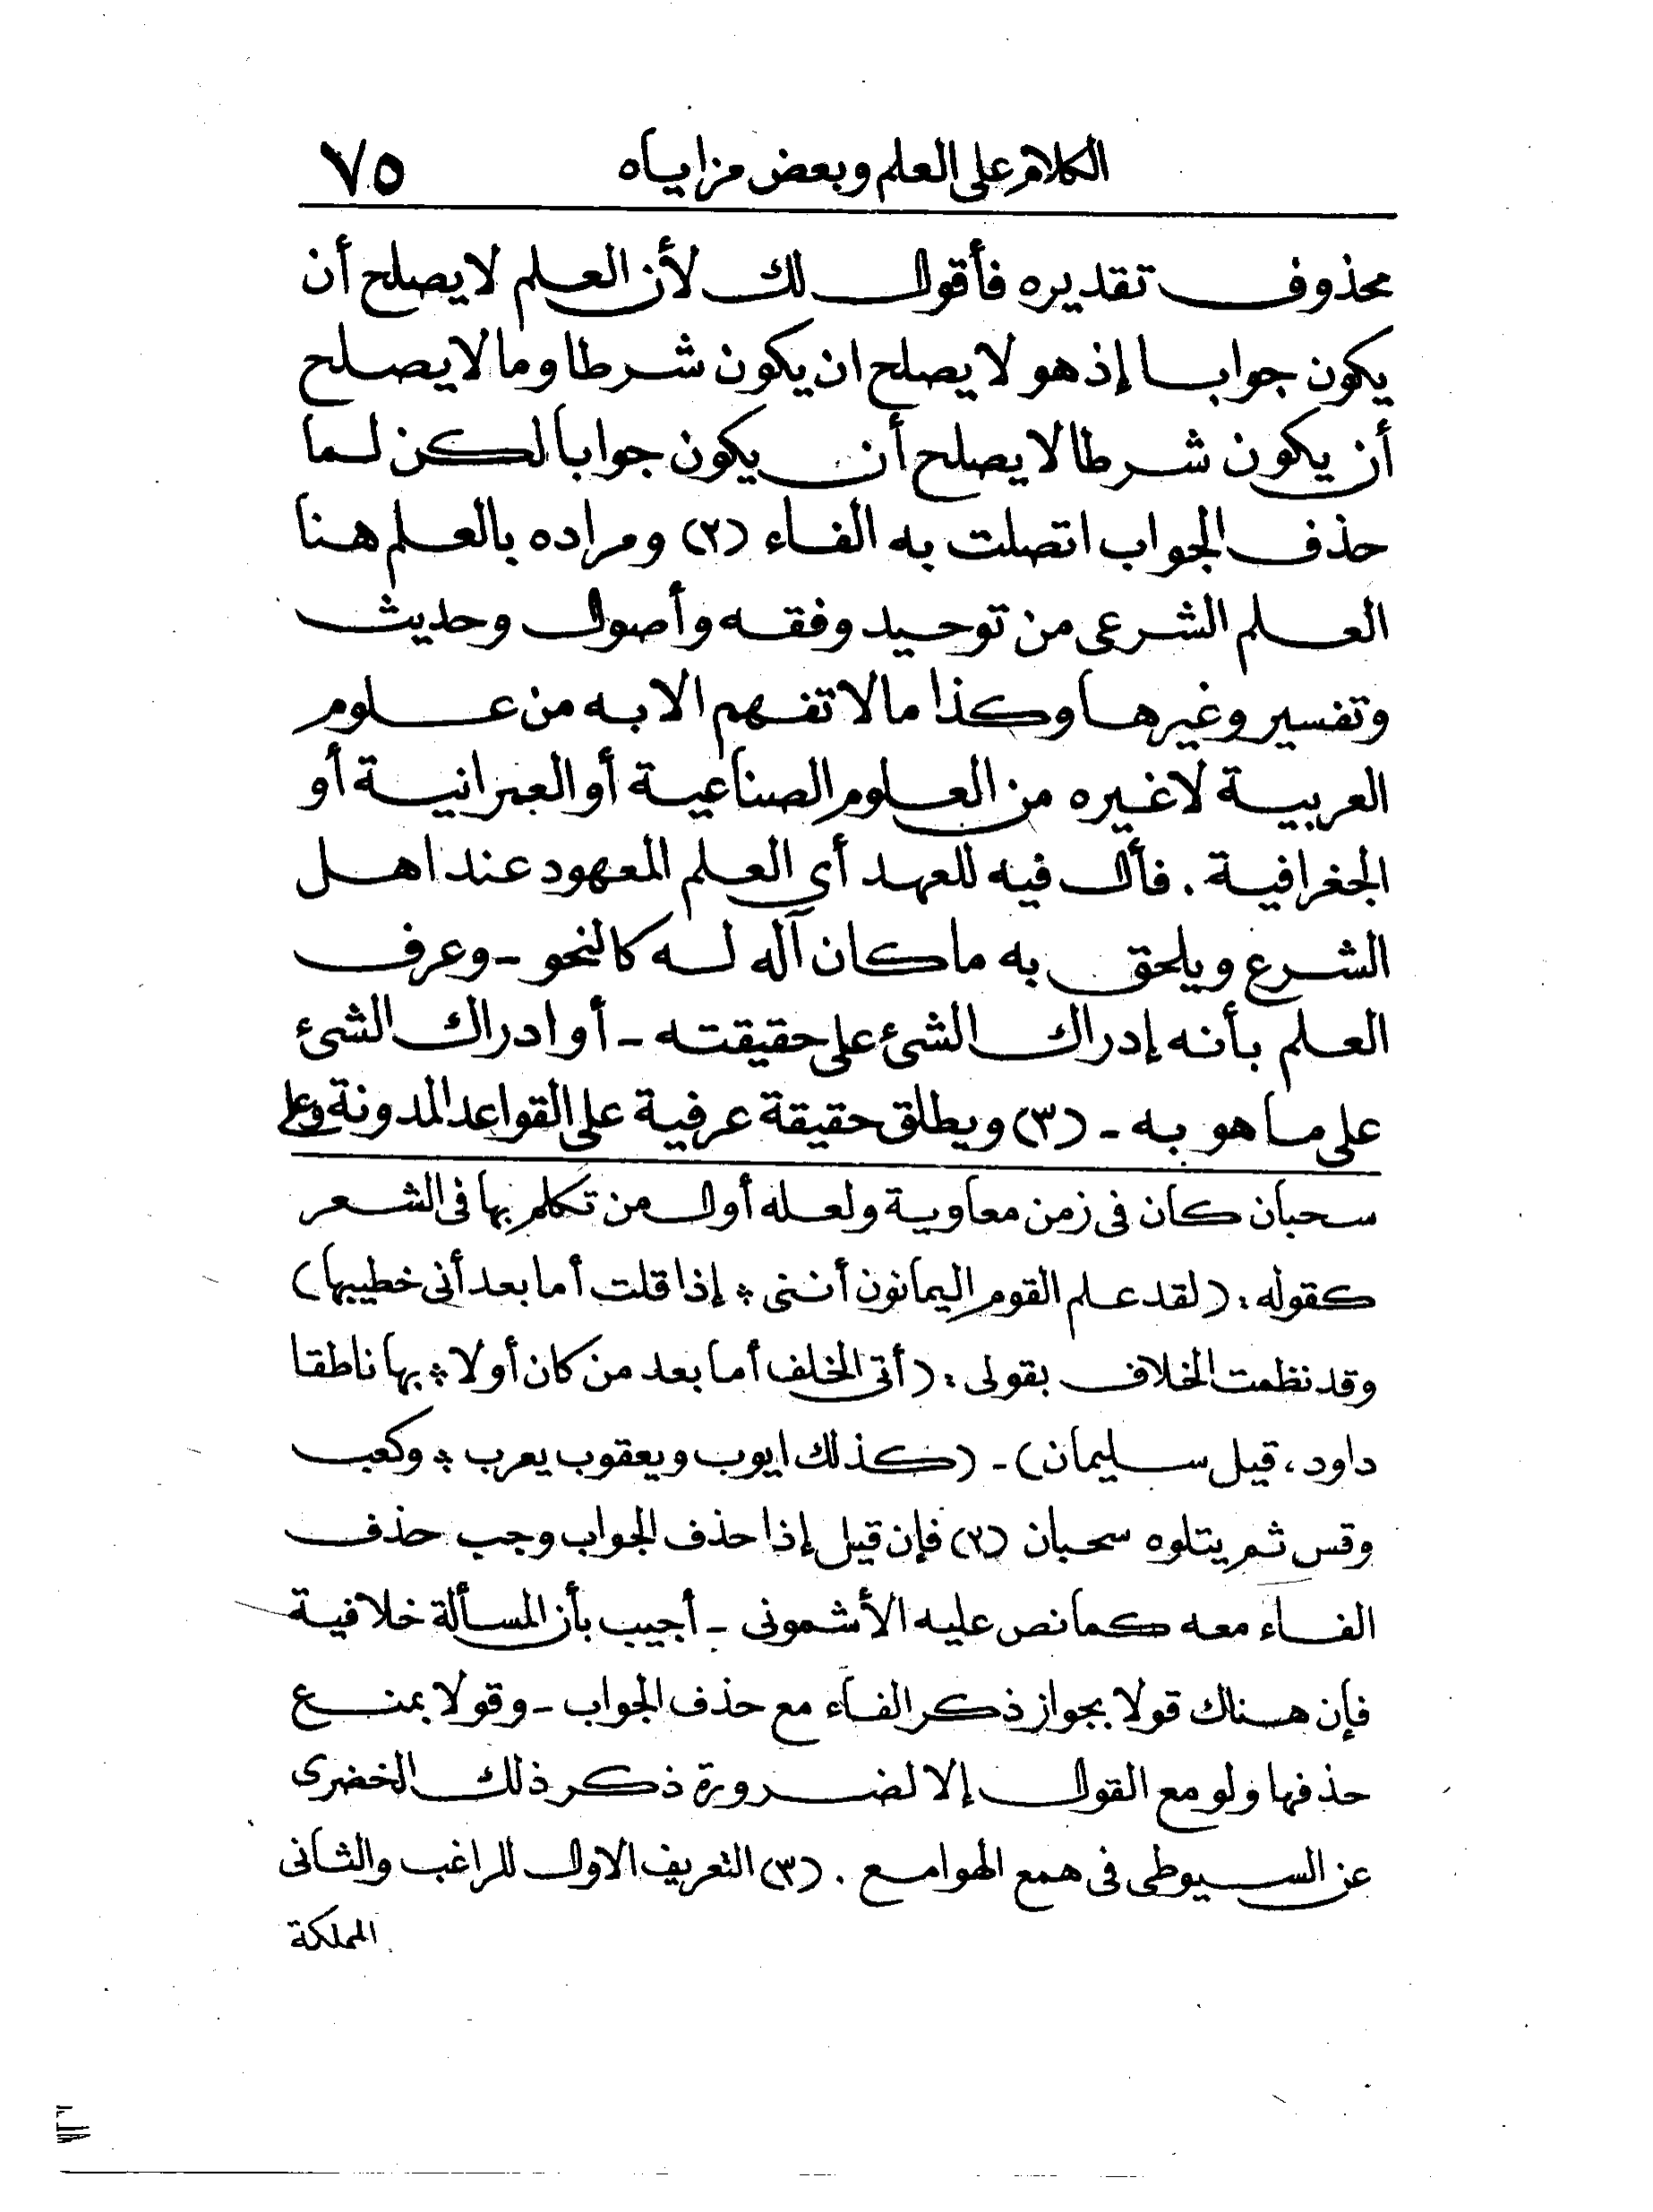 الكلام على العلم وبعض مزاياه ٧٥
محذوف تقديره فأقول لك لأن العلم لا يصلح أن
يكون جوابا إذ هو لا يصلح ان يكون شرطا وما لا يصلح
أن يكون شرطا لا يصلح أن يكون جوابا لكن لما
حذف الجواب اتصلت به الفاء (٢) ومراده بالعلم هنا
العلم الشرعى من توحيد وفقه وأصول وحديث
وتفسير وغيرها وكذا مالا تفهم الا به من علوم
العربية لا غيره من العلوم الصناعية أو العبرانية أو
الجغرافية . فأل فيه للعهد أي العلم المعهود عند اهل
الشرع ويلحق به ما كان آله له كالنحو - وعرف
العلم بأنه إدراك الشئ على حقيقته - أو ادراك الشئ
على ما هو به - (٣) ويطلق حقيقة عرفية على القواعد المدونة وعلى
سحبان كان فى زمن معاوية ولعله أول من تكلم بها فى الشعر
كقوله : (لقد علم القوم اليمانون أننى * إذا قلت أما بعد أنى خطيبها)
وقد نظمت الخلاف بقولى : (أتى الخلف أما بعد من كان أولا * بها ناطقا
داود ، قيل سليمان) - (كذلك ايوب ويعقوب يعرب * وكعب
وقس ثم يتلوه سحبان (٢) فإن قيل إذا حذف الجواب وجب حذف
الفاء معه كما نص عليه الأشمونى - أجيب بأن المسألة خلافية
فإن هناك قولا بجواز ذكر الفاء مع حذف الجواب - وقولا بمنع
حذفها ولو مع القول إلا لضرورة ذكر ذلك الخضرى
عن السيوطى فى همع الهوامع . (٣) التعريف الاول للراغب والثانى
المملكة